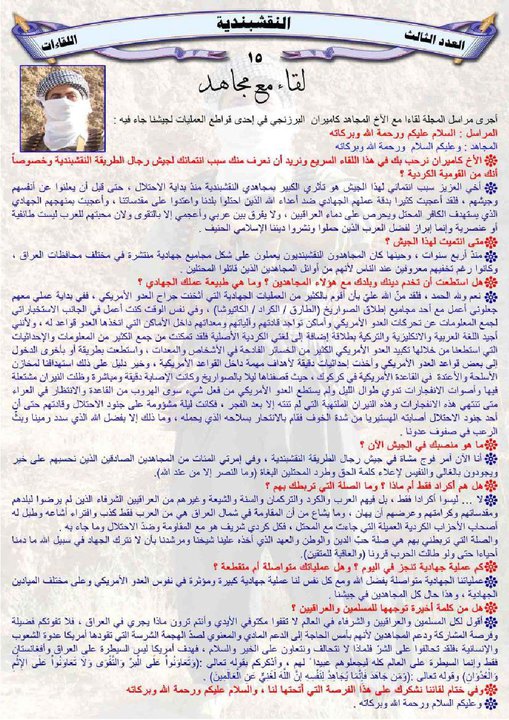 النقشبندية
العدد الثالث
اللقاءات
١٥
لقاء مع مجاهد
أجرى مراسل المجلة لقاءا مع الأخ المجاهد كاميران البرزنجي في إحدى قواطع العمليات لجيشنا جاء فيه :
المراسل : السلام عليكم ورحمة الله وبركاته
المجاهد : وعليكم السلام ورحمة الله وبركاته
الأخ كاميران نرحب بك في هذا اللقاء السريع ونريد أن نعرف منك سبب انتمائك لجيش رجال الطريقة النقشبندية وخصوصاً
أنك من القومية الكردية ؟
أخي العزيز سبب انتمائي لهذا الجيش هو تأثري الكبير بمجاهدي النقشبندية منذ بداية الاحتلال ، حتى قبل أن يعلنوا عن أنفسهم
وجيشهم ، فلقد أعجبت كثيرا بدقة عملهم الجهادي ضد أعداء الله الذين احتلوا بلدنا واعتدوا على مقدساتنا ، وأعجبت بمنهجهم الجهادي
الذي يستهدف الكافر المحتل ويحرص على دماء العراقيين ، ولا يفرق بين عربي وأعجمي إلا بالتقوى ولان محبتهم للعرب ليست طائفية
أو عنصرية وإنما إبراز لفضل العرب الذين حملوا ونشروا ديننا الإسلامي الحنيف .
متى انتميت لهذا الجيش ؟
منذ أربع سنوات ، وحينها كان المجاهدون النقشبنديون يعملون على شكل مجاميع جهادية منتشرة في مختلف محافظات العراق ،
وكانوا رغم تخفيهم معروفين عند الناس لأنهم من أوائل المجاهدين الذين قاتلوا المحتلين .
هل استطعت أن تخدم دينك وبلدك مع هؤلاء المجاهدين ؟ وما هي طبيعة عملك الجهادي ؟
نعم ولله الحمد ، فلقد منّ الله عليّ بأن أقوم بالكثير من العمليات الجهادية التي أثخنت جراح العدو الأمريكي ، ففي بداية عملي معهم
جعلوني أعمل مع أحد مجاميع إطلاق الصواريخ (الطارق / الكراد / الكاتيوشا) ، وفي نفس الوقت كنت أعمل في الجانب الاستخباراتي
لجمع المعلومات عن تحركات العدو الأمريكي وأماكن تواجد قادتهم وآلياتهم ومعداتهم داخل الأماكن التي اتخذها العدو قواعد له ، ولأنني
أجيد اللغة العربية والانكليزية والتركية بطلاقة إضافة إلى لغتي الكردية الأصلية فلقد تمكنت من جمع الكثير من المعلومات والإحداثيات
التي استطعنا من خلالها تكبيد العدو الأمريكي الكثير من الخسائر الفادحة في الأشخاص والمعدات ، واستطعت بطريقة أو بأخرى الدخول
إلى بعض قواعد العدو الأمريكي وأخذت إحداثيات دقيقة لأهداف مهمة داخل القواعد الأمريكية ، وخير دليل على ذلك استهدافنا لمخازن
الأسلحة والأعتدة في القاعدة الأمريكية في كركوك ، حيث قصفناها ليلا بالصواريخ وكانت الإصابة دقيقة ومباشرة وظلت النيران مشتعلة
فيها وأصوات الانفجارات تدوي طوال الليل ولم يستطع العدو الأمريكي من فعل شيء سوى الهروب من القاعدة والانتظار في العراء
متى تنتهي هذه الانفجارات وهذه النيران الملتهبة التي لم تنته إلا بعد الفجر ، فكانت ليلة مشؤومة على جنود الاحتلال وقادتهم حتى أن
أحد جنود الاحتلال أصابته الهستيريا من شدة الخوف فقام بالانتحار بسلاحه الذي يحمله ، وما ذلك إلا بفضل الله الذي سدد رمينا وبثّ
الرعب في صفوف عدونا .
ما هو منصبك في الجيش الآن ؟
أنا الآن آمر فوج مشاة في جيش رجال الطريقة النقشبندية ، وفي إمرتي المئات من المجاهدين الصادقين الذين نحسبهم على خير
ويجودون بالغالي والنفيس لإعلاء كلمة الحق وطرد المحتلين البغاة (وما النصر إلا من عند الله).
هل هم أكراد فقط أم ماذا ؟ وما الصلة التي تربطك بهم ؟
لا … ليسوا أكرادا فقط ، بل فيهم العرب والكرد والتركمان والسنة والشيعة وغيرهم من العراقيين الشرفاء الذين لم يرضوا لبلدهم
ومقدساتهم وكرامتهم وعرضهم أن يهان ، وما يشاع من أن المقاومة في شمال العراق هي من العرب فقط كذب وافتراء أشاعه وطبل له
أصحاب الأحزاب الكردية العميلة التي جاءت مع المحتل ، فكل كردي شريف هو مع المقاومة وضد الاحتلال وما جاء به .
والصلة التي تربطني بهم هي صلة حبّ الدين والوطن والعهد الذي أخذه علينا شيخنا ومرشدنا بأن لا نترك الجهاد في سبيل الله ما دمنا
أحياءا حتى ولو طالت الحرب قرونا (والعاقبة للمتقين).
كم عملية جهادية تنجز في اليوم ؟ وهل عملياتك متواصلة أم متقطعة ؟
عملياتنا الجهادية متواصلة بفضل الله ومع كل نفس لنا عملية جهادية كبيرة ومؤثرة في نفوس العدو الأمريكي وعلى مختلف الميادين
الجهادية ، وهذا حال كل المجاهدين في جيشنا .
هل من كلمة أخيرة توجهها للمسلمين والعراقيين ؟
أقول لكل المسلمين والشرفاء في العالم لا تقفوا مكتوفي الأيدي وأنتم ترون ماذا يجري في العراق ، فلا تفوتكم فضيلة
وفرصة المشاركة ودعم المجاهدين لأنهم بأمس الحاجة إلى الدعم المادي والمعنوي لصدّ الهجمة الشرسة التي تقودها أمريكا عدوة الشعوب
والإنسانية ،فلقد تحالفوا على الشرّ فلماذا لا نتحالف ونتعاون على الخير والسلام ، فهدف أمريكا ليس السيطرة على العراق وأفغانستان
فقط وإنما السيطرة على العالم كله ليجعلوهم عبيدا ً لهم ، وأذكركم بقوله تعالى :(وَتَعَاوَنُوا عَلَى الْبِرِّ وَالتَّقْوَى وَلَا تَعَاوَنُوا عَلَى الْإِثْمِ
وَالْعُدْوَانِ) وقوله تعالى :(وَمَن جَاهَدَ فَإِنَّمَا يُجَاهِدُ لِنَفْسِهِ إِنَّ اللَّهَ لَغَنِيٌّ عَنِ الْعَالَمِينَ) .
وفي ختام لقائنا نشكرك على هذا الفرصة التي أتحتها لنا ، والسلام عليكم ورحمة الله وبركاته
وعليكم السلام ورحمة الله وبركاته .